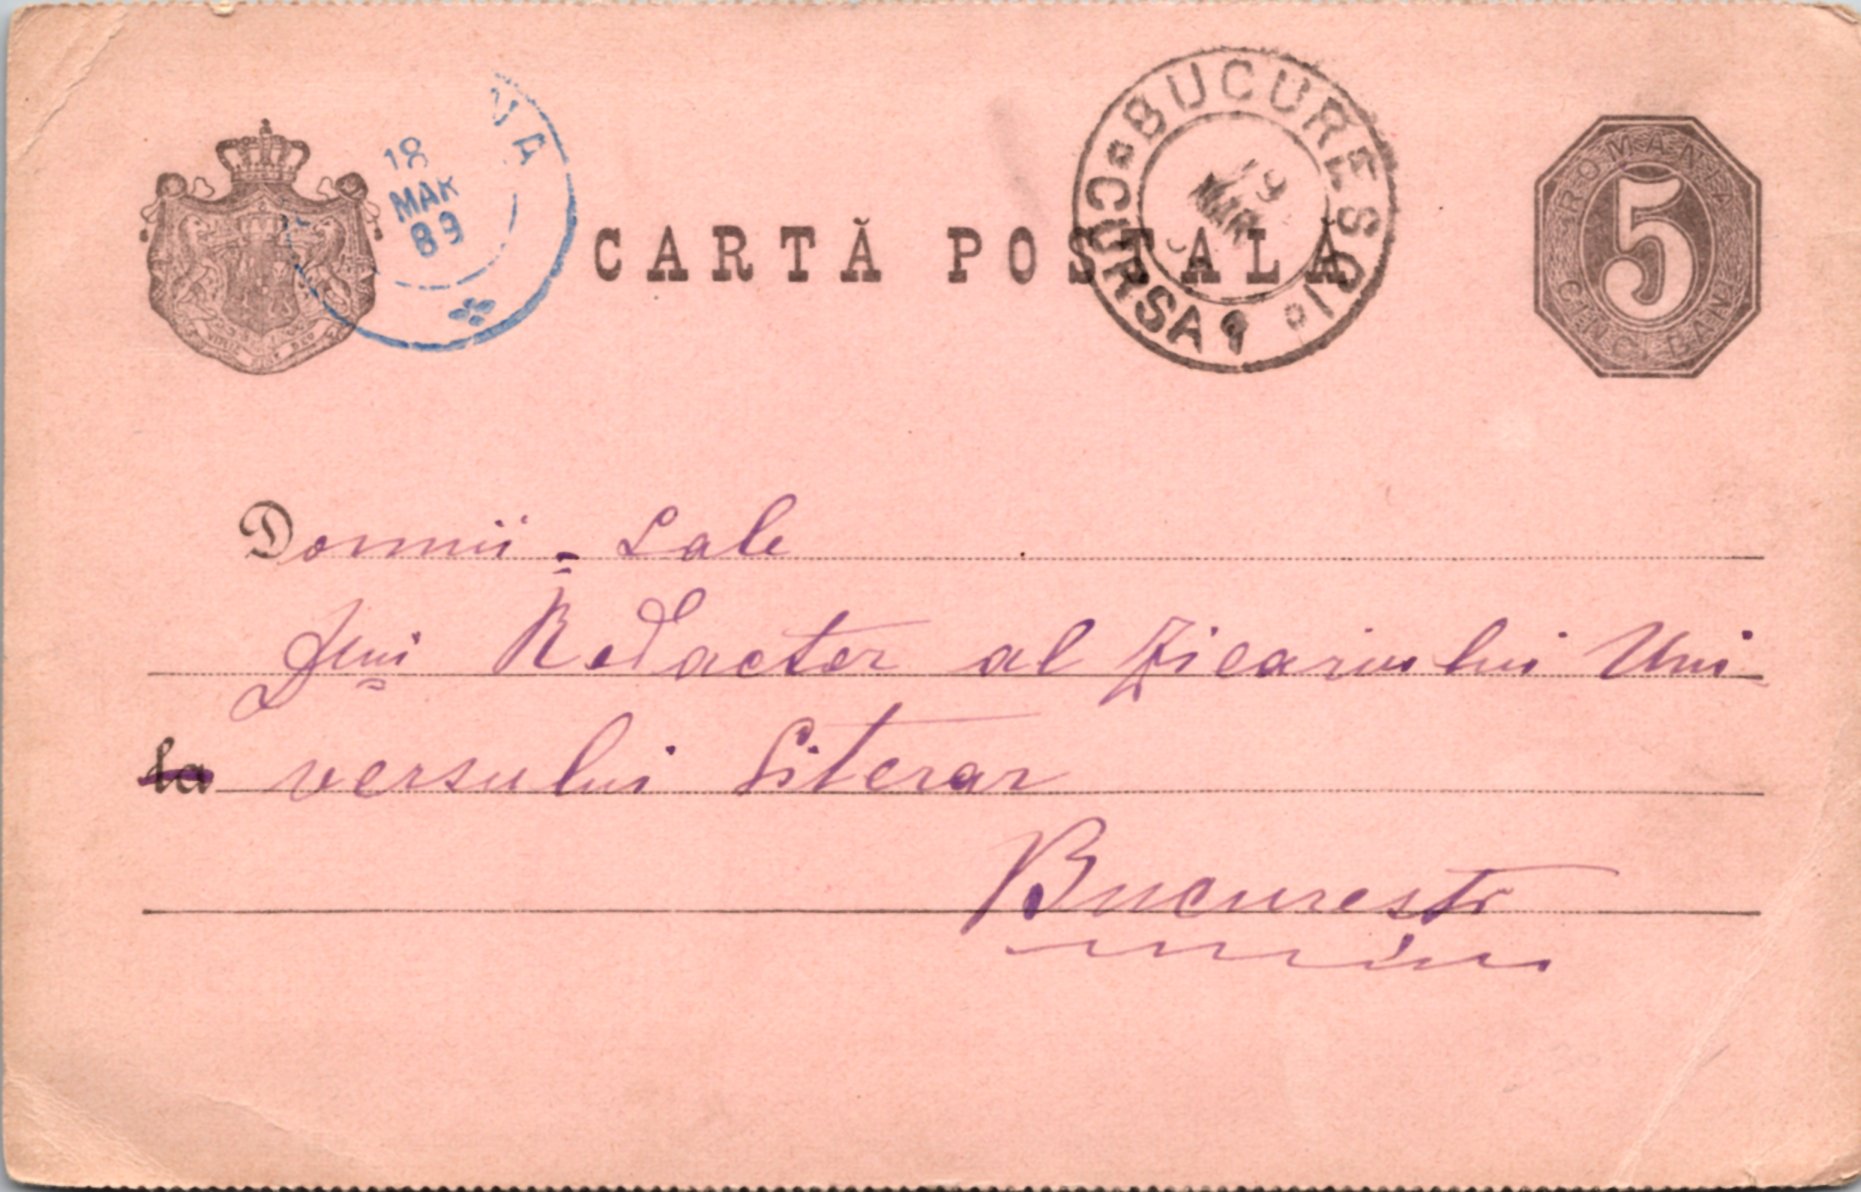 18
MAR
89
CARTĂ POSTALĂ
BUCURESCI
19
MAR
CURSA 1
ROMANEA
5
CINCI BANI
Domnii = Sale
Dnui Redactor al Zieariului Uni
la versului Literar
Bucuresti